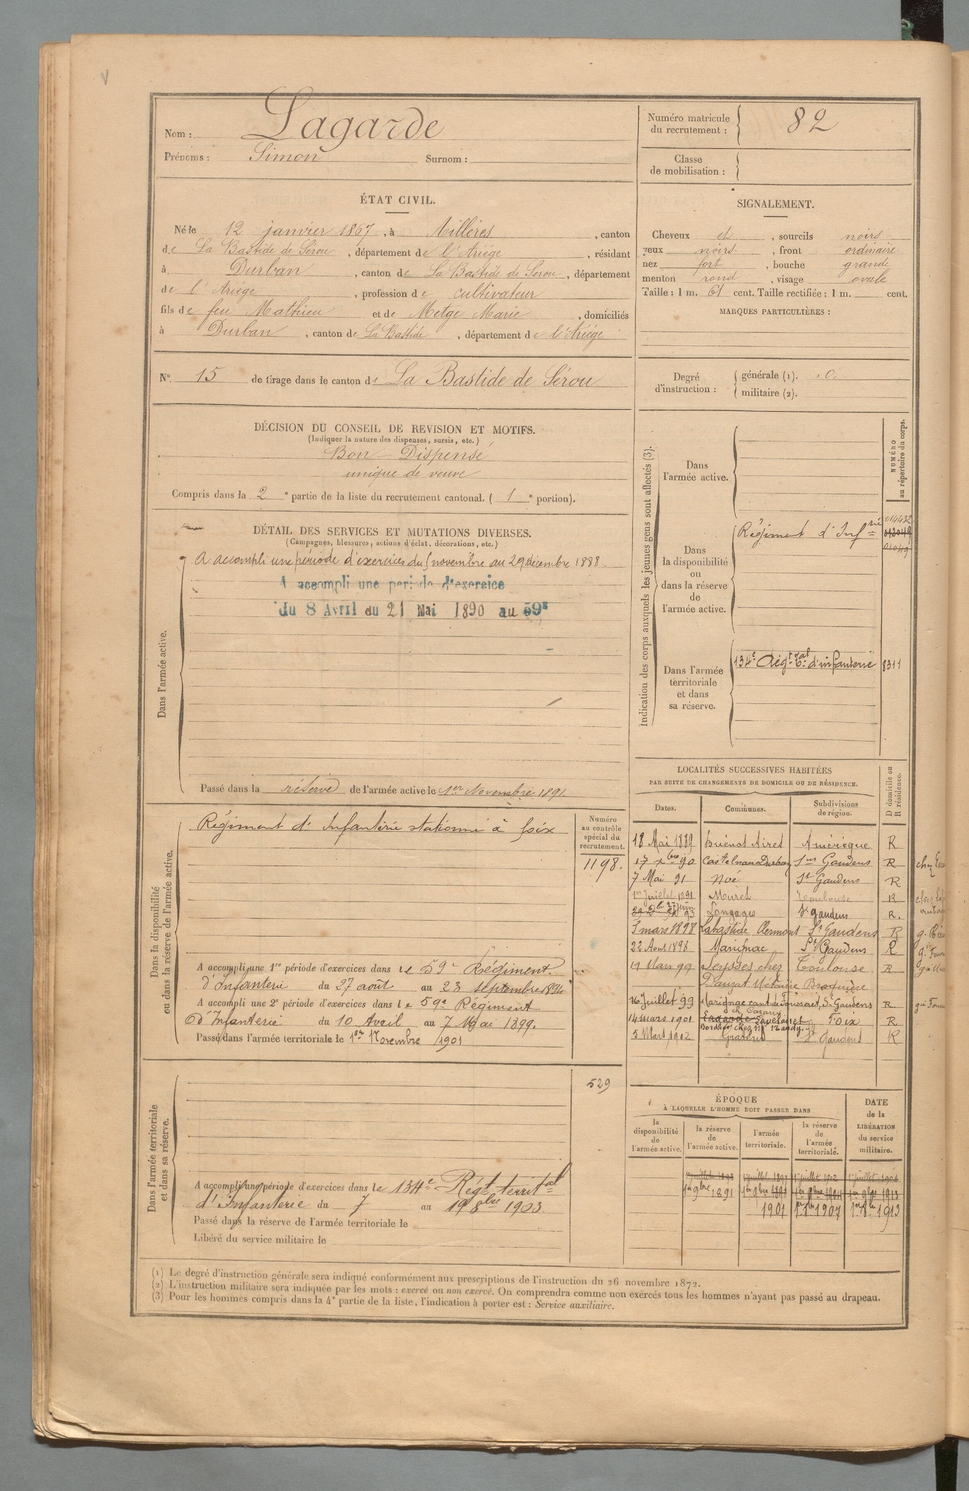 Nom : Lagarde
Prénoms : Simon Surnom :
Numéro matricule du recrutement : 82
Classe de mobilisation :
ÉTAT CIVIL.
Né le 12 janvier 1867, à Aillères, canton
de La Bastide de Sérou, département de l'Ariège, résidant
à Durban, canton de La Bastide de Sérou, département
de l'Ariège, profession de cultivateur
fils de feu Mathieu et de Metge Marie, domiciliés
à Durban, canton de La Bastide, département de l'Ariège
SIGNALEMENT.
Cheveux et, sourcils noirs
yeux noirs, front ordinaire
nez fort, bouche grande
menton rond, visage ovale
Taille : 1 m. 61 cent. Taille rectifiée : 1 m. cent.
MARQUES PARTICULIÈRES :
N° 15 de tirage dans le canton de La Bastide de Sérou
Degré d'instruction : générale (1). 0
militaire (2).
DÉCISION DU CONSEIL DE REVISION ET MOTIFS.
(Indiquer la nature des dispenses, sursis, etc.)
Bon Dispensé
unique de veuve
Compris dans la 2e partie de la liste du recrutement cantonal. ( 1e portion).
DÉTAIL DES SERVICES ET MUTATIONS DIVERSES.
(Campagnes, blessures, actions d'éclat, décorations, etc.)
Dans l'armée active.
A accompli une période d'exercices du 5 novembre au 29 décembre 1888
A accompli une période d'exercice
du 8 Avril du 21 Mai 1890 au 59e
Passé dans la réserve de l'armée active le 1er Novembre 1891
Indication des corps auxquels les jeunes gens sont affectés (3).
NUMÉRO au répertoire du corps.
Dans l'armée active.
Dans la disponibilité ou dans la réserve de l'armée active.
Régiment d'Infrie
Dans l'armée territoriale et dans sa réserve.
134e Régt tal d'infanterie 8311
LOCALITÉS SUCCESSIVES HABITÉES
PAR SUITE DE CHANGEMENTS DE DOMICILE OU DE RÉSIDENCE.
D domicile ou R résidence.
Dates. Communes. Subdivisions de région.
18 Mai 1889 Buenos Aires Amérique R
17 xbre 90 Castelnau Durban St Gaudens R
7 Mai 91 Noé St Gaudens R
1er Juillet 1891 Muret Toulouse R
Longages St gaudens R.
3 mars 1898 Labastide Clermont St Gaudens R
22 Aout 1898 Marignac St Gaudens R
17 Mars 99 Seysses chez Toulouse R
16 Juillet 99 St Gaudens R
14 mars 1901 Lavelanet Foix R
5 Mars 1902 St Gaudens R
Dans la disponibilité ou dans la réserve de l'armée active.
Régiment d'Infanterie stationné à Foix
Numéro au contrôle spécial du recrutement.
1198.
A accompli une 1re période d'exercices dans le 59e Régiment
d'Infanterie du 27 août au 23 septembre 1894
A accompli une 2e période d'exercices dans le 59e Régiment
d'Infanterie du 10 Avril au 7 Mai 1899.
Passé dans l'armée territoriale le 1er Novembre 1901
Dans l'armée territoriale et dans sa réserve.
529
A accompli une période d'exercices dans le 134e Régt territal
d'Infanterie du 7 au 19 8bre 1903
Passé dans la réserve de l'armée territoriale le
Libéré du service militaire le
ÉPOQUE
À LAQUELLE L'HOMME DOIT PASSER DANS
la disponibilité de l'armée active. la réserve de l'armée active. l'armée territoriale. la réserve de l'armée territoriale.
DATE de la LIBÉRATION du service militaire.
1er 9bre 1891
1901 1907 1913
(1) Le degré d'instruction générale sera indiqué conformément aux prescriptions de l'instruction du 26 novembre 1872.
(2) L'instruction militaire sera indiquée par les mots : exercé ou non exercé. On comprendra comme non exercés tous les hommes n'ayant pas passé au drapeau.
(3) Pour les hommes compris dans la 4e partie de la liste, l'indication à porter est : Service auxiliaire.